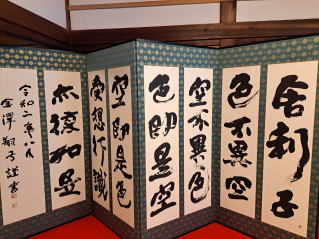 舎利子
色不異空
空不異色
色即是空
空即是色
受想行識
亦復如是
令和二年八月
金澤翔子謹書